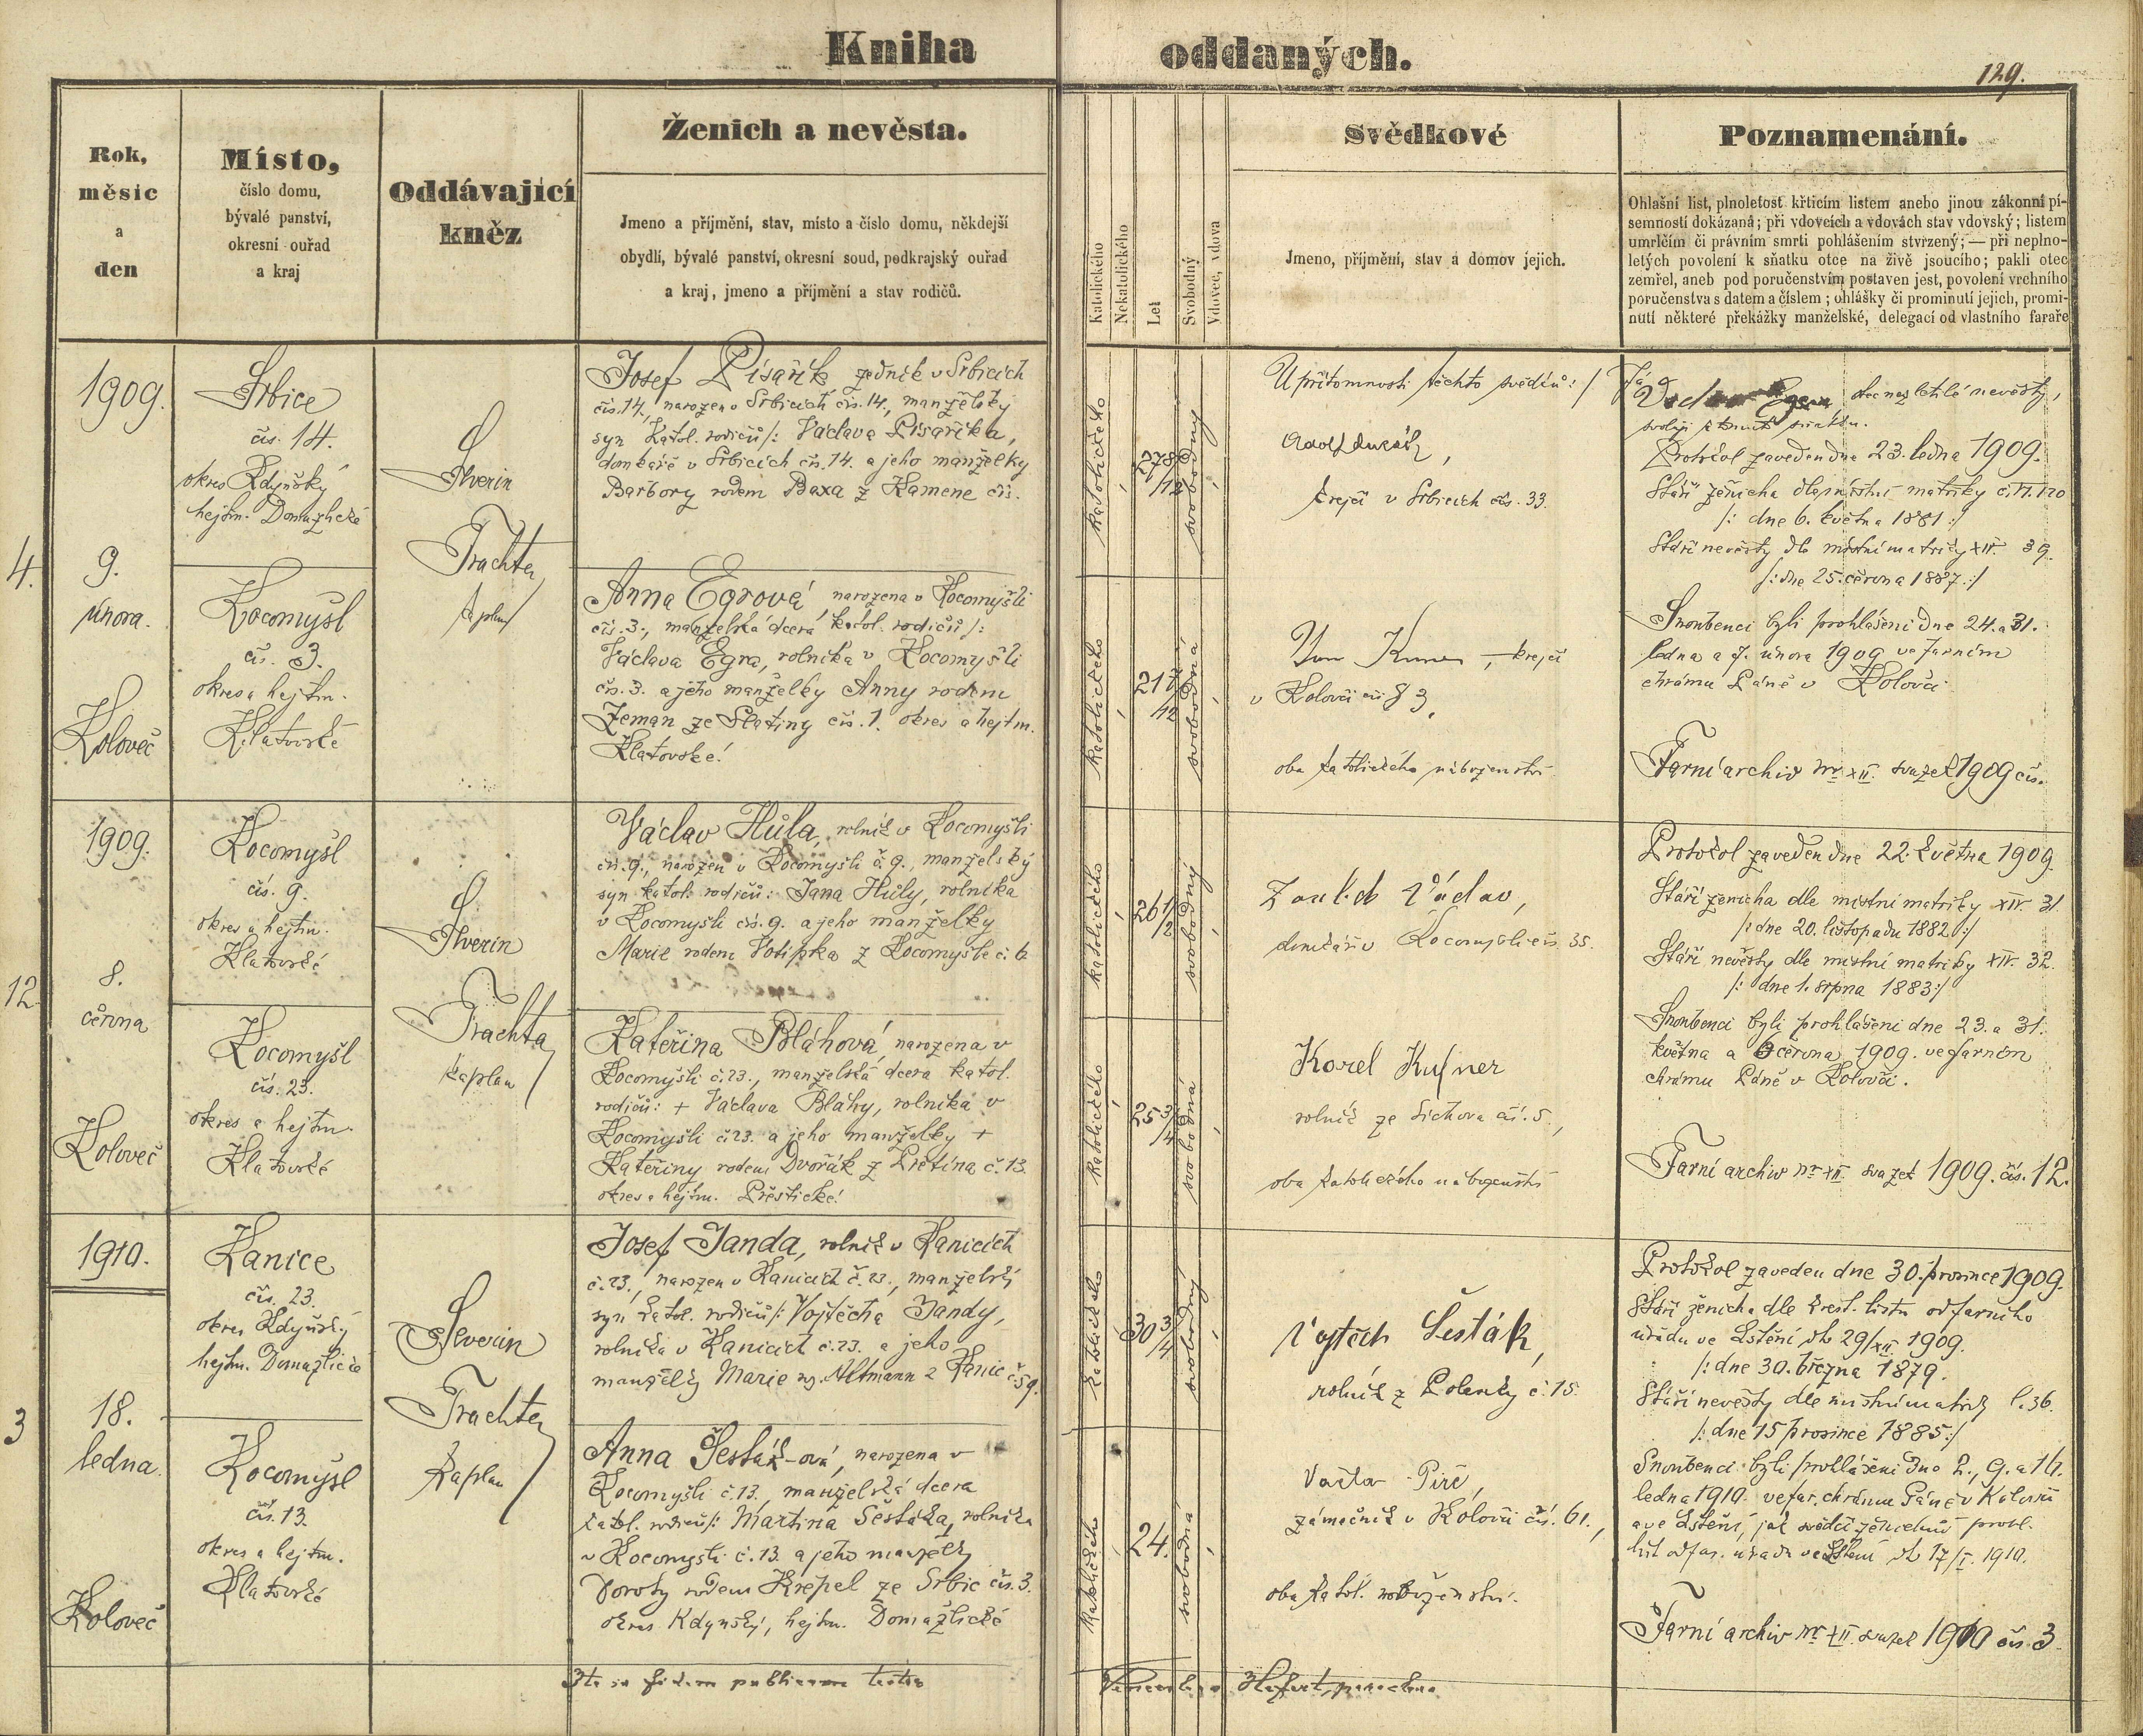 Kniha oddaných.
129.
Rok,
měsíc
a
den
Místo,
číslo domu,
bývalé panství,
okresní ouřad
a kraj
Oddávající
kněz
Ženich a nevěsta.
Jmeno a příjmění, stav, místo a číslo domu, někdejší
obydlí, bývalé panství, okresní soud, podkrajský ouřad
a kraj, jmeno a příjmění a stav rodičů.
Katolického
Nekatolického
Let
Svobodný
Vdovec, vdova
Svědkové
Jmeno, příjmění, stav a domov jejich.
Poznamenání.
Ohlašní list, plnoletost křticím listem anebo jinou zákonní pí-
semností dokázaná; při vdovcích a vdovách stav vdovský; listem
umrlčím či právním smrti pohlášením stvrzený; — při neplno-
letých povolení k sňatku otce na živě jsoucího; pakli otec
zemřel, aneb pod poručenstvím postaven jest, povolení vrchního
poručenstva s datem a číslem; ohlášky či prominutí jejich, promi-
nutí některé překážky manželské, delegací od vlastního faraře
4.
1909.
9.
února.
Koloveč
Srbice
čís. 14.
okres Kdyňský
hejtm. Domažlické
Kocomyšl
čís. 3.
okres a hejtm.
Klatovské
Severin
Trachta
kaplan
Josef Pisařík, zedník v Srbicích
čís. 14., narozen v Srbicích čís. 14., manželský
syn katol. rodičů /: Václava Pisaříka,
domkáře v Srbicích čís. 14. a jeho manželky
Barbory rodem Baxa z Kamene čís.
Anna Egrová narozena v Kocomyšli
čís. 3., manželská dcera katol. rodičů /:
Václava Egra, rolníka v Kocomyšli
čís. 3. a jeho manželky Anny rodem
Zeman ze Slatiny čís. 1. okres a hejtm.
Klatovské!
katolického
27 8/12
svobodný
katolického
21 7/12
svobodná
U přítomnosti těchto svědků:/
krejčí v Srbicích čís. 33.
krejčí
v Kolovči čís 83.
oba katolického náboženství
Já
otec nezletilé nevěsty,
svoluji k tomuto sňatku.
Protokol zaveden dne 23. ledna 1909.
Stáří ženicha dle místní matriky
/: dne 6. května 1881 :/
Stáří nevěsty dle místní matriky XIV. 39.
/: dne 25. června 1887. :/
Snoubenci byli prohlášeni dne 24. a 31.
ledna a 7. února 1909 ve farním
chrámu Páně v Kolovči
Farní archiv nr XII. svazek 1909 čís.
12.
1909.
8.
června
Koloveč
Kocomyšl
čís. 9.
okres a hejtm.
Klatovské
Kocomyšl
čís. 23.
okres a hejtm.
Klatovské
Severin
Trachta
kaplan
Václav Hůla, rolník v Kocomyšli
čís. 9., narozen v Kocomyšli č. 9., manželský
syn katol. rodičů: Jana Hůly, rolníka
v Kocomyšli čís. 9. a jeho manželky
Marie rodem Votipka z Kocomyšle č. 6
Kateřina Bláhová, narozena v
Kocomyšli č. 23., manželská dcera katol.
rodičů: + Václava Bláhy, rolníka v
Kocomyšli č. 23. a jeho manželky +
Kateřiny rodem Dvořák z Přetína č. 13.
okres a hejtm. Přeštické!
katolického
26 1/2
svobodný
katolického
25 3/4
svobodná
Václav,
domkář v Kocomyšli čís 35.
Karel Kufner
rolník ze Sichova čís. 5.,
oba katolického náboženství
Protokol zaveden dne 22. května 1909.
Stáří ženicha dle místní matriky XIV. 31.
/: dne 20. listopadu 1882 :/
Stáří nevěsty dle místní matriky XIV. 32.
/: dne 1. srpna 1883 :/
Snoubenci byli prohlášeni dne 23. a 31.
května a 6 června 1909. ve farním
chrámu Páně v Kolovči.
Farní archiv nr XII. svazek 1909. čís. 12.
3
1910.
18.
ledna.
Koloveč
Kanice
čís. 23.
okres Kdyňský
hejtm. Domažlické
Kocomyšl
čís. 13.
okres a hejtm.
Klatovské
Severin
Trachta
kaplan
Josef Janda, rolník v Kanicích
č. 23., narozen v Kanicích č. 23., manželský
syn katol. rodičů /: Vojtěcha Jandy,
rolníka v Kanicích č. 23. a jeho
manželky Marie roz. Altmann z Kanic č. 59.
Anna Šesták-ová, narozena v
Kocomyšli č. 13., manželská dcera
katol. rodičů /: Martina Šestáka, rolníka
v Kocomyšli č. 13. a jeho manželky
Doroty rodem Krepel ze Srbic čís. 3.
okres Kdyňský, hejtm. Domažlické
katolického
30 3/4
svobodný
katolického
24.
svobodná
Vojtěch Šesták,
rolník z Polenky č. 15.
zámečník v Kolovči čís. 61.,
oba katol. náboženství.
Protokol zaveden dne 30. prosince 1909.
Stáří ženicha dle křest. listu od farního
úřadu ve Lštění dto 29/XII. 1909.
/: dne 30. března 1879.
Stáří nevěsty dle místní matriky l. 36.
/: dne 15 prosince 1885 :/
Snoubenci byli prohlášeni dne 2., 9. a 16.
ledna 1910. ve far. chrámu Páně v Kolovči
a ve Lštění, jak svědčí ženichův prohl.
list od far. úřadu ve Lštění dto 17/I. 1910.
Farní archiv nr XII. svazek 1910 čís. 3.
Ita in fidem publicam testor